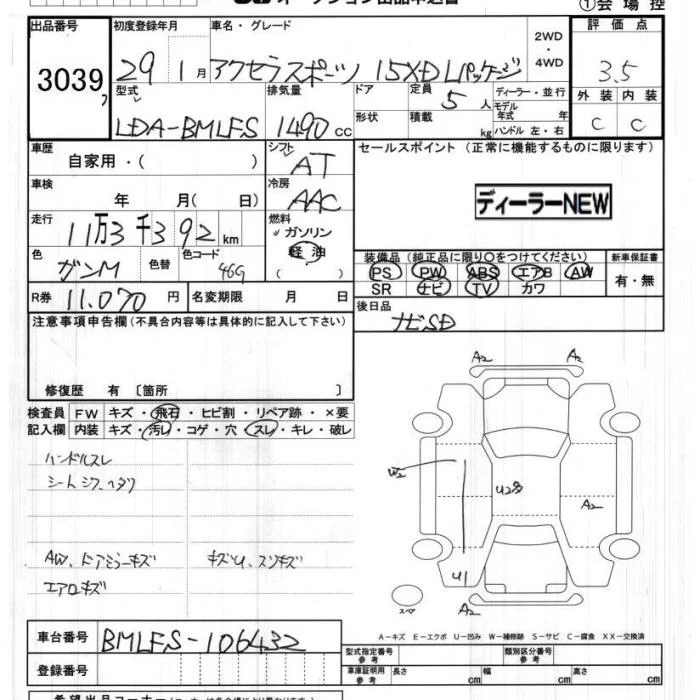 ①会場控
出品番号 初度登録年月 車名・グレード 2WD・4WD 評価点
3039 29年1月 アクセラスポーツ 15XD Lパッケージ 3.5
型式 排気量 ドア形状 定員 5人 積載 kg ディーラー・並行 モデル年式 年 ハンドル 左・右 外装 内装
LDA-BMLFS 1490cc C C
車歴 シフト セールスポイント(正常に機能するものに限ります)
自家用・( ) AT
車検 冷房
年 月( 日) AAC ディーラーNEW
走行 燃料
11万3千392km ガソリン
軽油
( )
色 色替 色コード 装備品(純正品に限り○をつけてください) 新車保証書
ガンM 46G PS PW ABS エアB AW 有・無
SR ナビ TV カワ
R券 11,070円 名変期限 月 日 後日品
注意事項申告欄(不具合内容等は具体的に記入して下さい) ナビSD
修復歴 有 〔箇所 〕
検査員 FW キズ・飛石・ヒビ割・リペア跡・×要
記入欄 内装 キズ・汚レ・コゲ・穴・スレ・キレ・破レ
ハンドルスレ
シートシワ、ヘタリ
AW、ドアミラーキズ キズU、スリキズ
エアロキズ
A2 A2
W2
U2多
A2
U1
A2
スペア
A-キズ E-エクボ U-凹み W-補修跡 S-サビ C-腐食 XX-交換済
車台番号 BMLFS-106432
登録番号
型式指定番号 参考 類別区分番号 参考
車庫証明用 参考 長さ cm 幅 cm 高さ cm